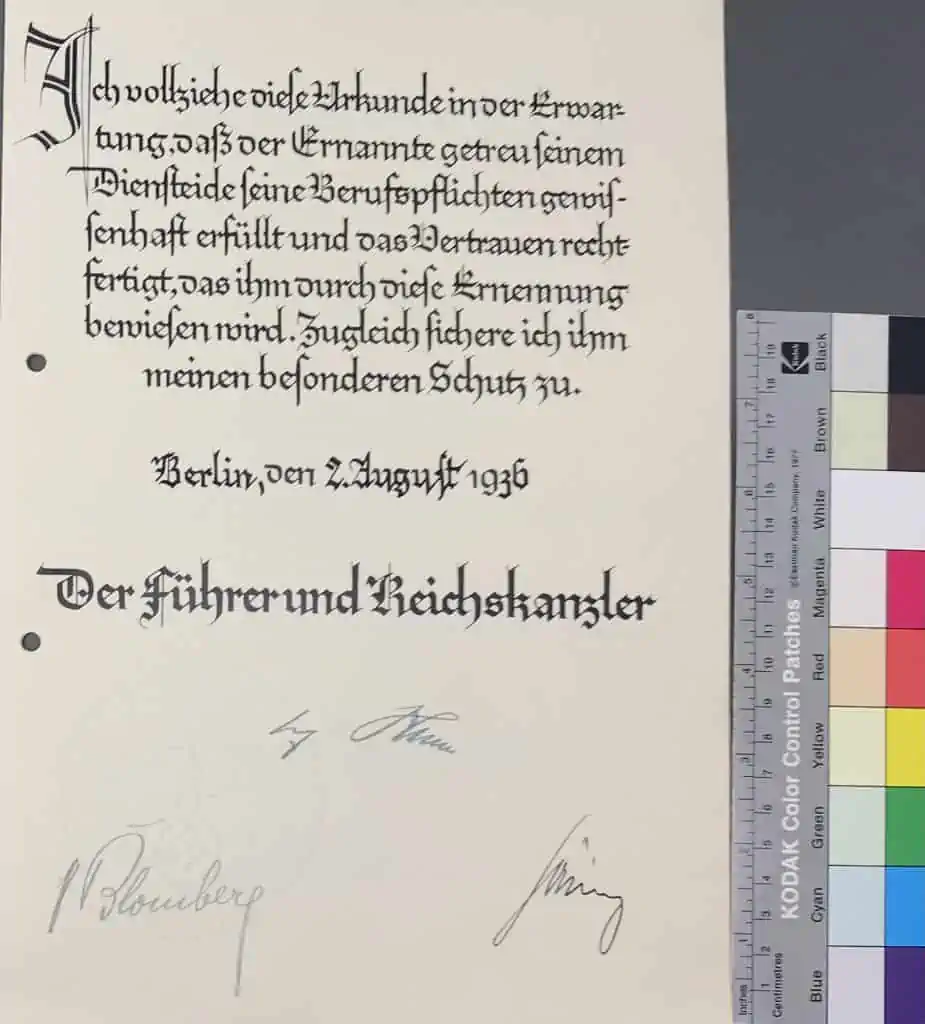 Ich vollziehe diese Urkunde in der Erwar-
tung, daß der Ernannte getreu seinem
Diensteide seine Berufspflichten gewis-
senhaft erfüllt und das Vertrauen recht-
fertigt, das ihm durch diese Ernennung
bewiesen wird. Zugleich sichere ich ihm
meinen besonderen Schutz zu.
Berlin, den 2. August 1936
Der Führer und Reichskanzler
Blomberg
Göring
KODAK Color Control Patches ©Eastman Kodak Company, 1977
Kodak
Black
Brown
White
Magenta
Red
Yellow
Green
Cyan
Blue
8
7
6
5
4
3
2
1
Inches
19
18
17
16
15
14
13
12
11
10
9
8
7
6
5
4
3
2
1
Centimetres